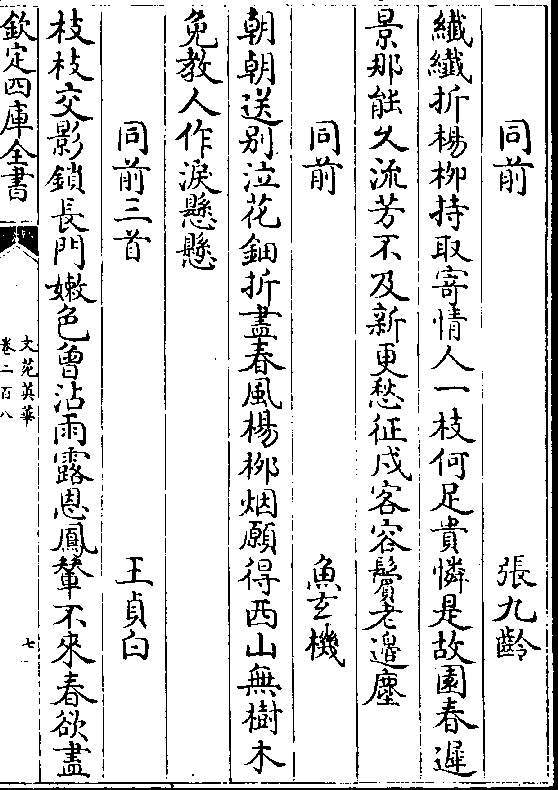 同前　張九齡
纖纖折楊柳持取寄情人一枝何足貴憐是故園春遲
景那能久流芳不及新更愁征戍客容鬢老邊塵
同前　魚玄機
朝朝送别泣花鈿折盡春風楊柳烟願得西山無樹木
免教人作淚懸懸
同前三首　王貞白
枝枝交影鎖長門嫩色曾沾雨露恩鳳輦不來春欲盡
欽定四庫全書
文苑英華
卷二百八
七